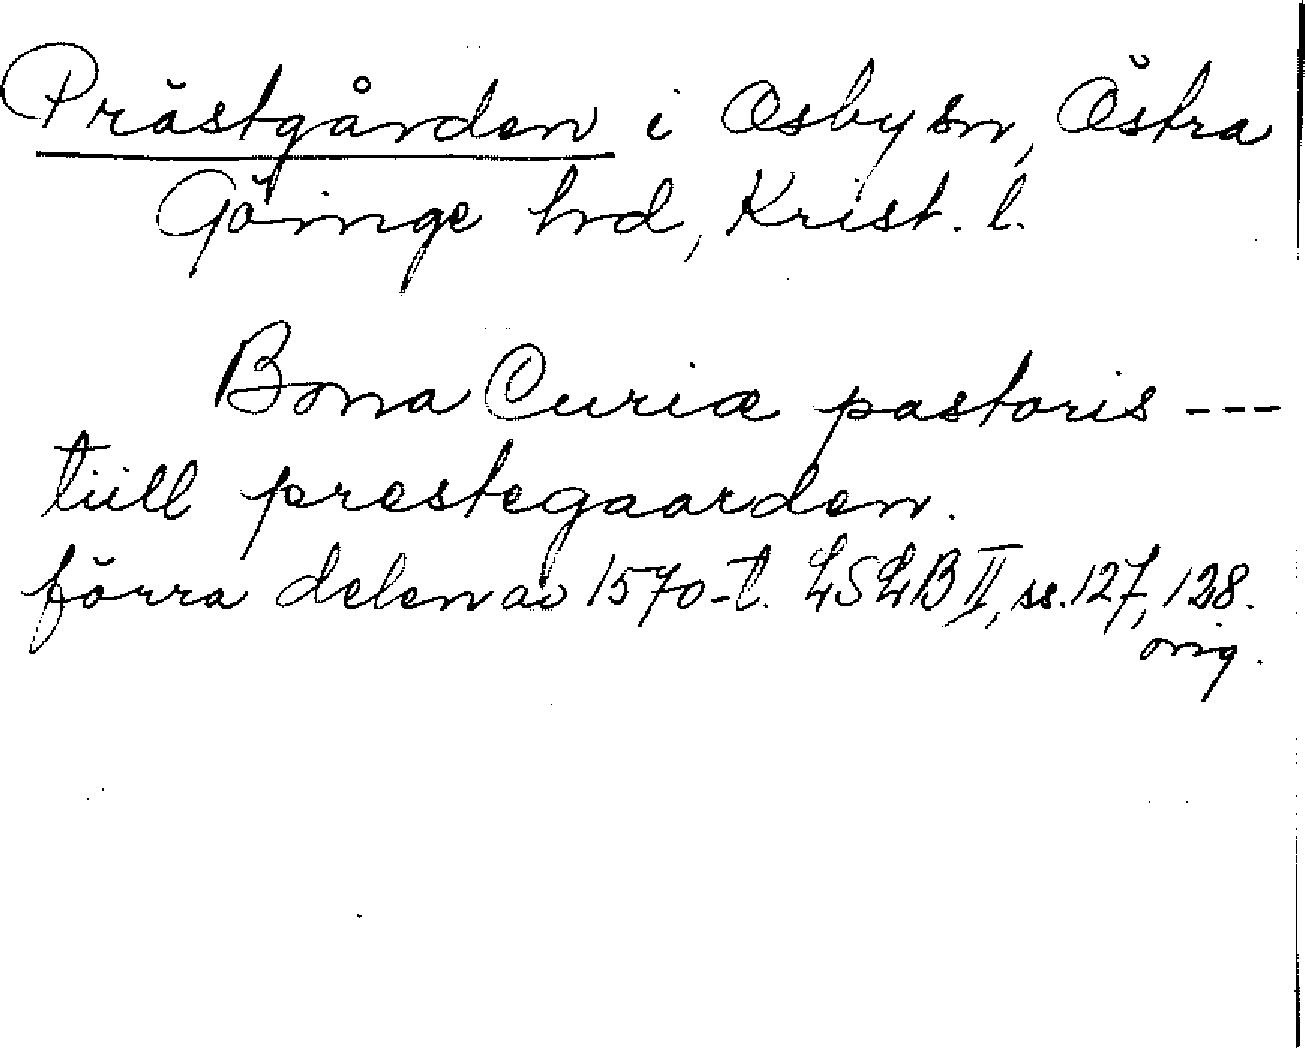 Prästgården i Osby sn, Östra
Göinge hrd, Krist. l.
Bona Curiæ pastoris ---
tiill prestegaarden.
förra delen av 1570-t. LSLB II, ss. 127, 128.
orig.